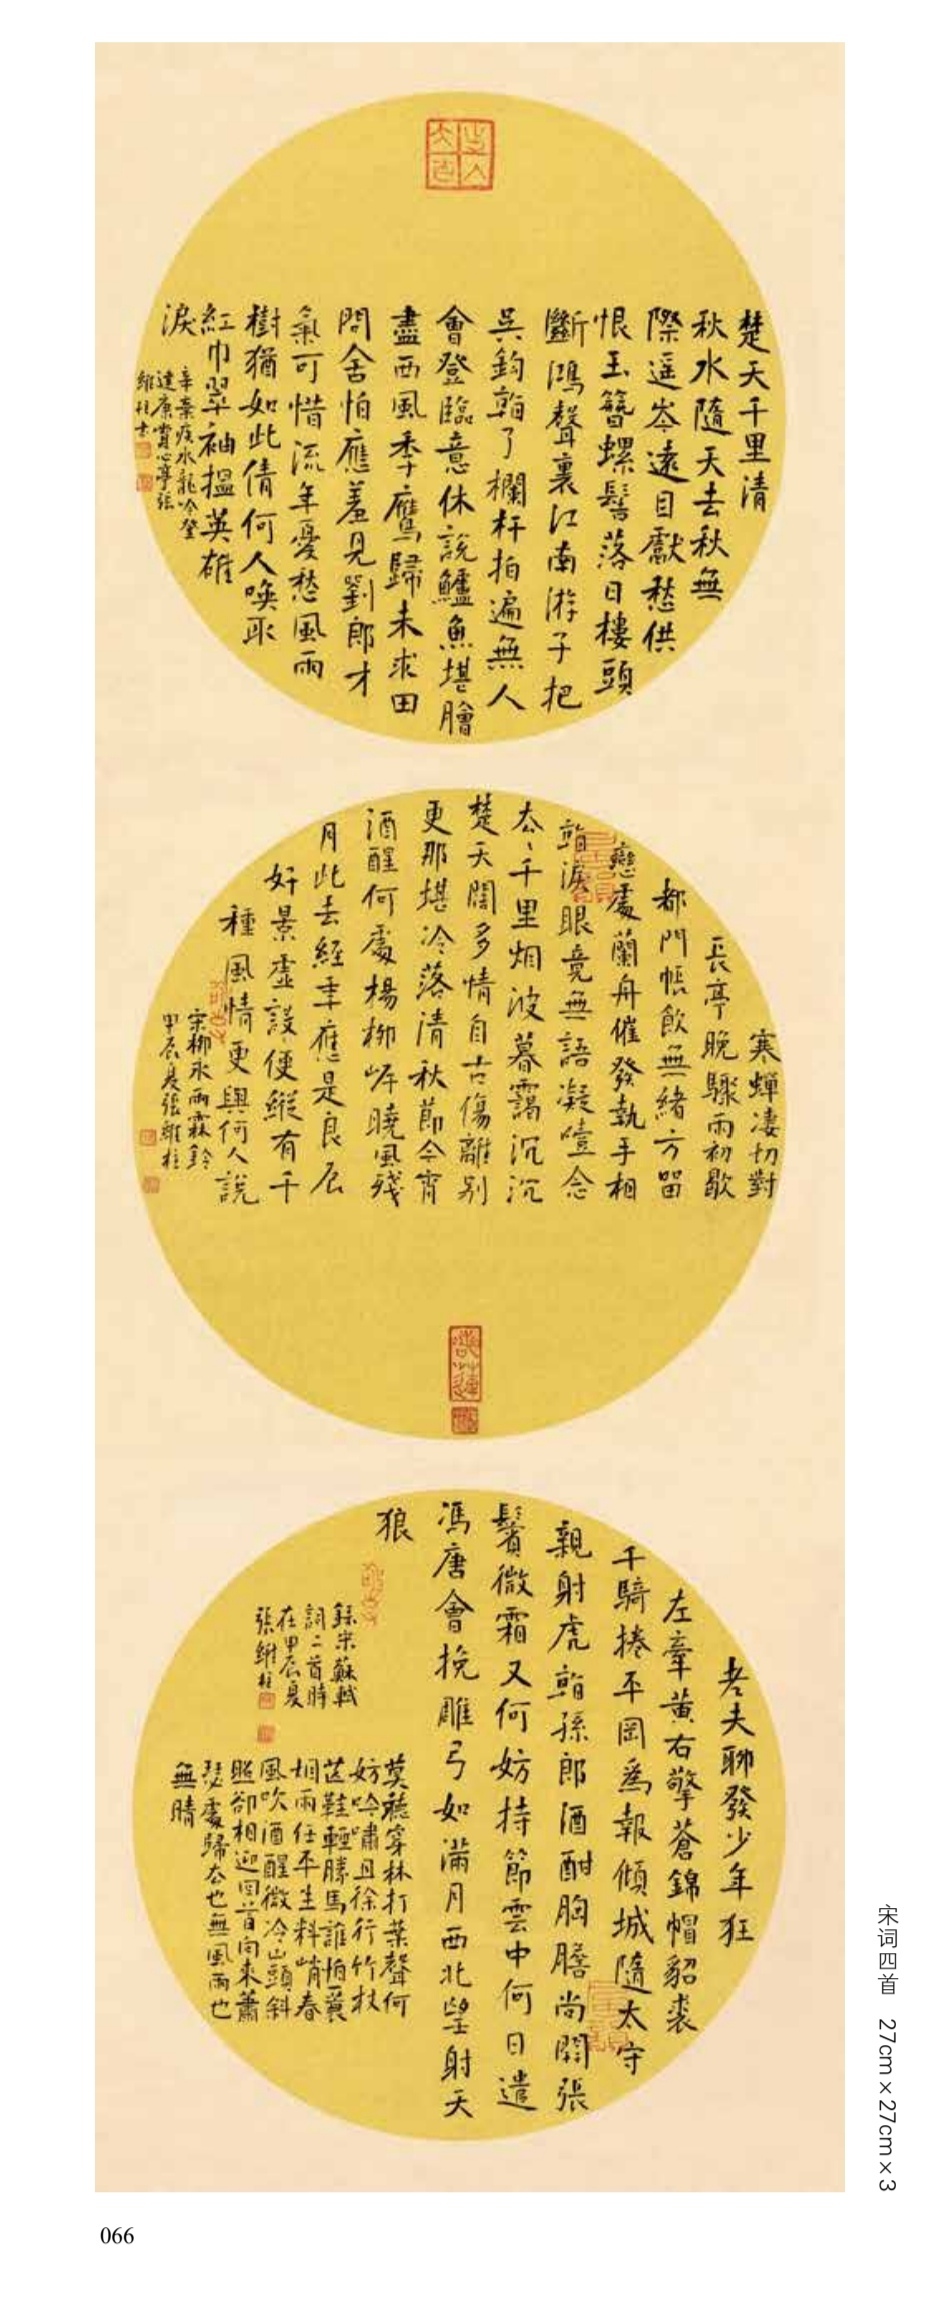 楚天千里清
秋水隨天去秋無
際遥岑遠目獻愁供
恨玉簪螺髻落日樓頭
斷鴻聲裏江南游子把
吴鈎看了欄杆拍遍無人
會登臨意休説鱸魚堪膾
盡西風季鷹歸未求田
問舍怕應羞見劉郎才
氣可惜流年憂愁風雨
樹猶如此倩何人唤取
紅巾翠袖揾英雄
淚
辛棄疾水龍吟登
建康賞心亭張
維柱書
寒蟬凄切對
長亭晚驟雨初歇
都門帳飲無緒方留
戀處蘭舟催發執手相
看淚眼竟無語凝噎念
去、千里烟波暮靄沉沉
楚天闊多情自古傷離别
更那堪冷落清秋節今宵
酒醒何處楊柳岸曉風殘
月此去經年應是良辰
好景虛設便縱有千
種風情更與何人説
宋柳永雨霖鈴
甲辰夏張維柱
老夫聊發少年狂
左牽黄右擎蒼錦帽貂裘
千騎捲平岡爲報傾城隨太守
親射虎看孫郎酒酣胸膽尚開張
鬢微霜又何妨持節雲中何日遣
馮唐會挽雕弓如滿月西北望射天
狼
録宋蘇軾
詞二首時
在甲辰夏
張維柱
莫聽穿林打葉聲何
妨吟嘯且徐行竹杖
芒鞋輕勝馬誰怕蓑
烟雨任平生料峭春
風吹酒醒微冷山頭斜
照卻相迎回首向來蕭
瑟處歸去也無風雨也
無晴
宋词四首 27cm×27cm×3
066